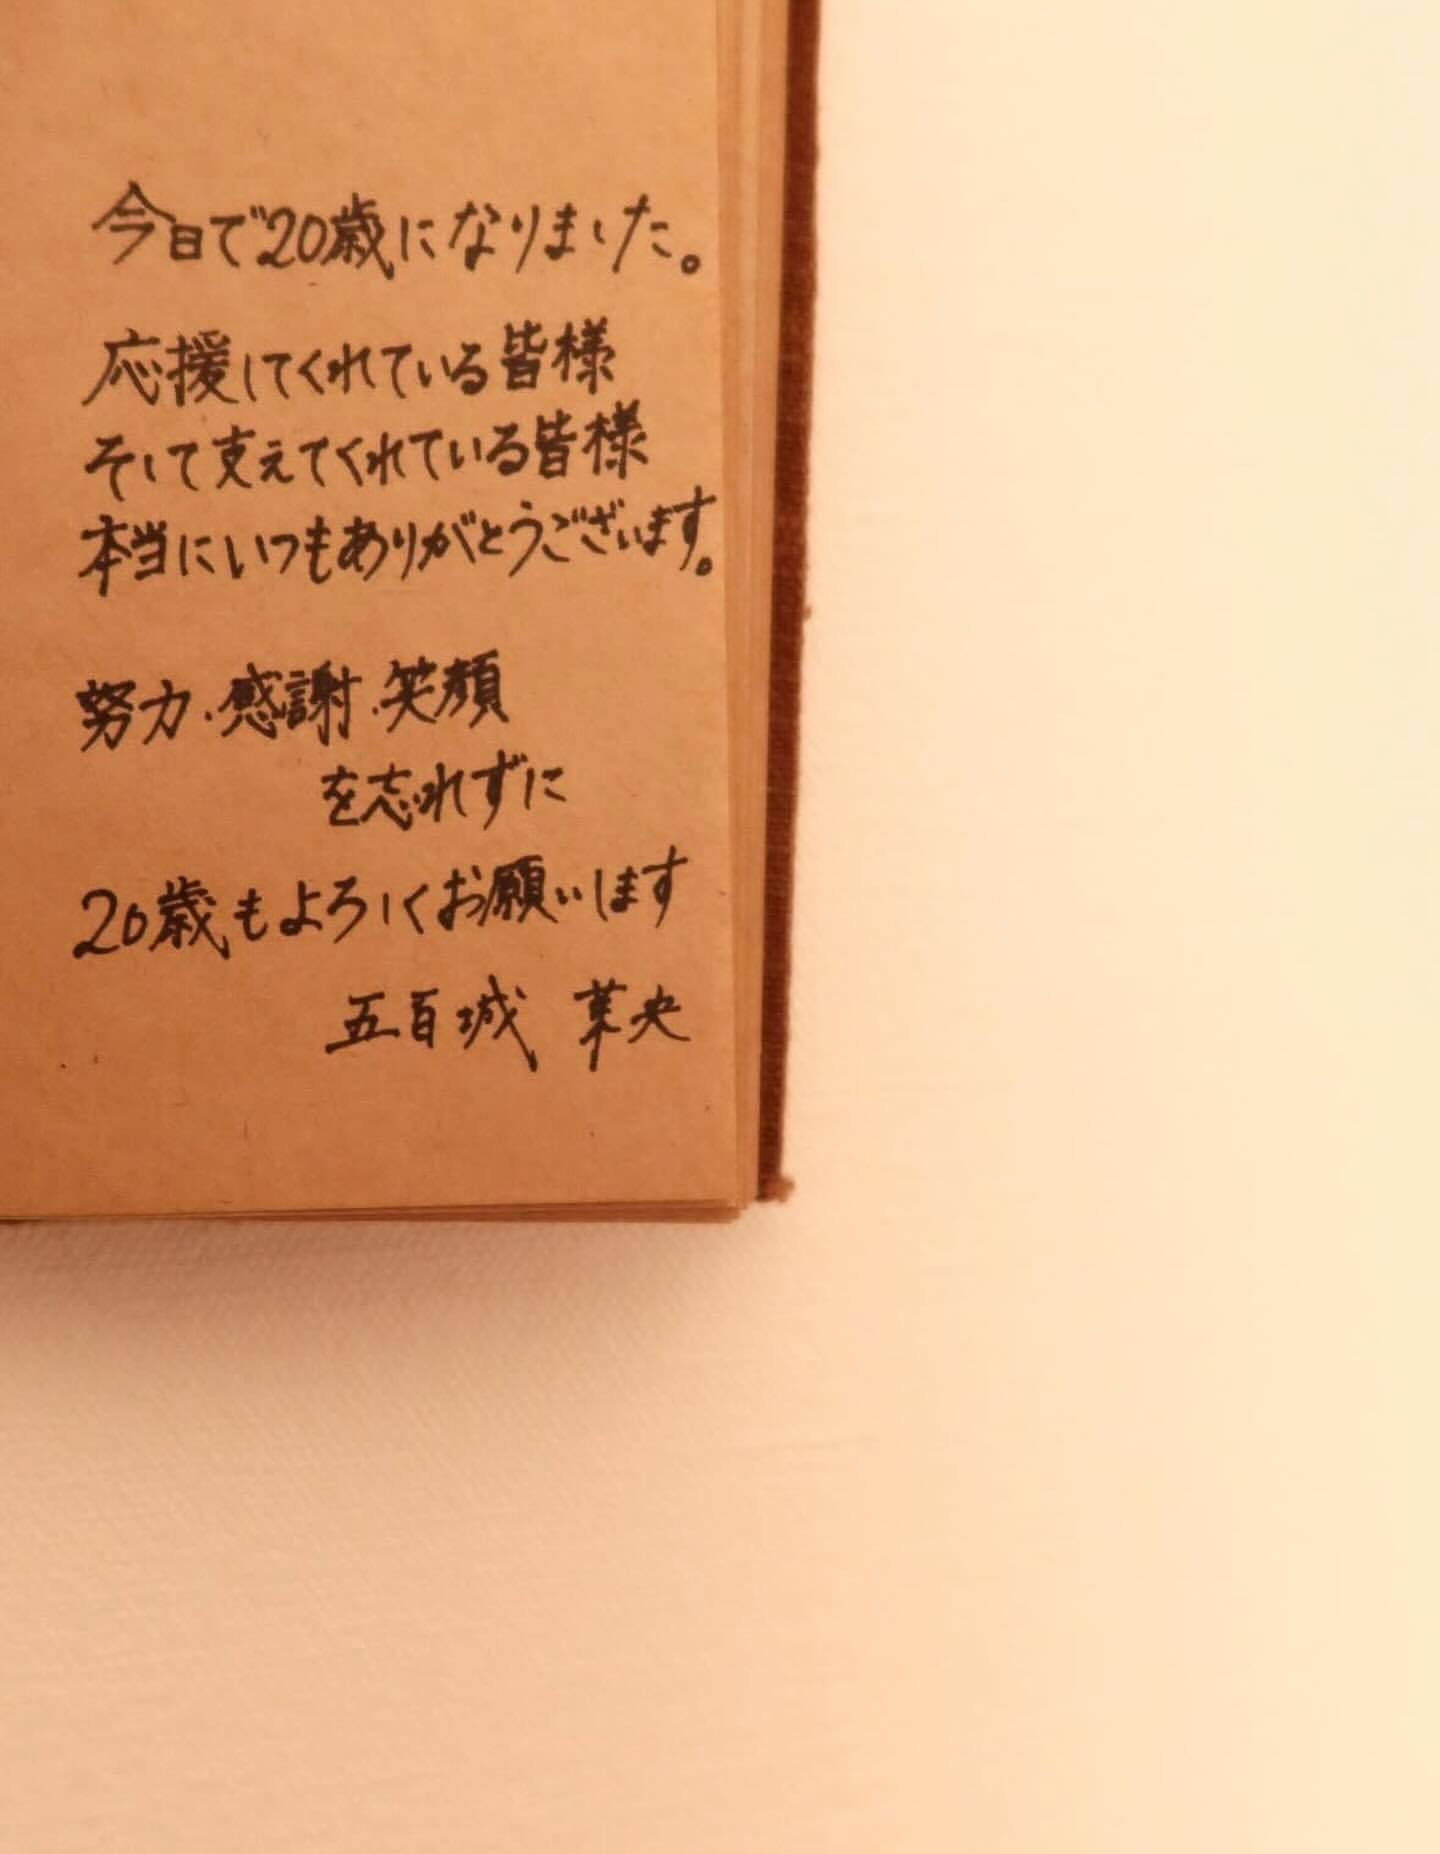 今日で20歳になりました。
応援してくれている皆様
そして支えてくれている皆様
本当にいつもありがとうございます。
努力・感謝・笑顔
を忘れずに
20歳もよろしくお願いします
五百城 茉央